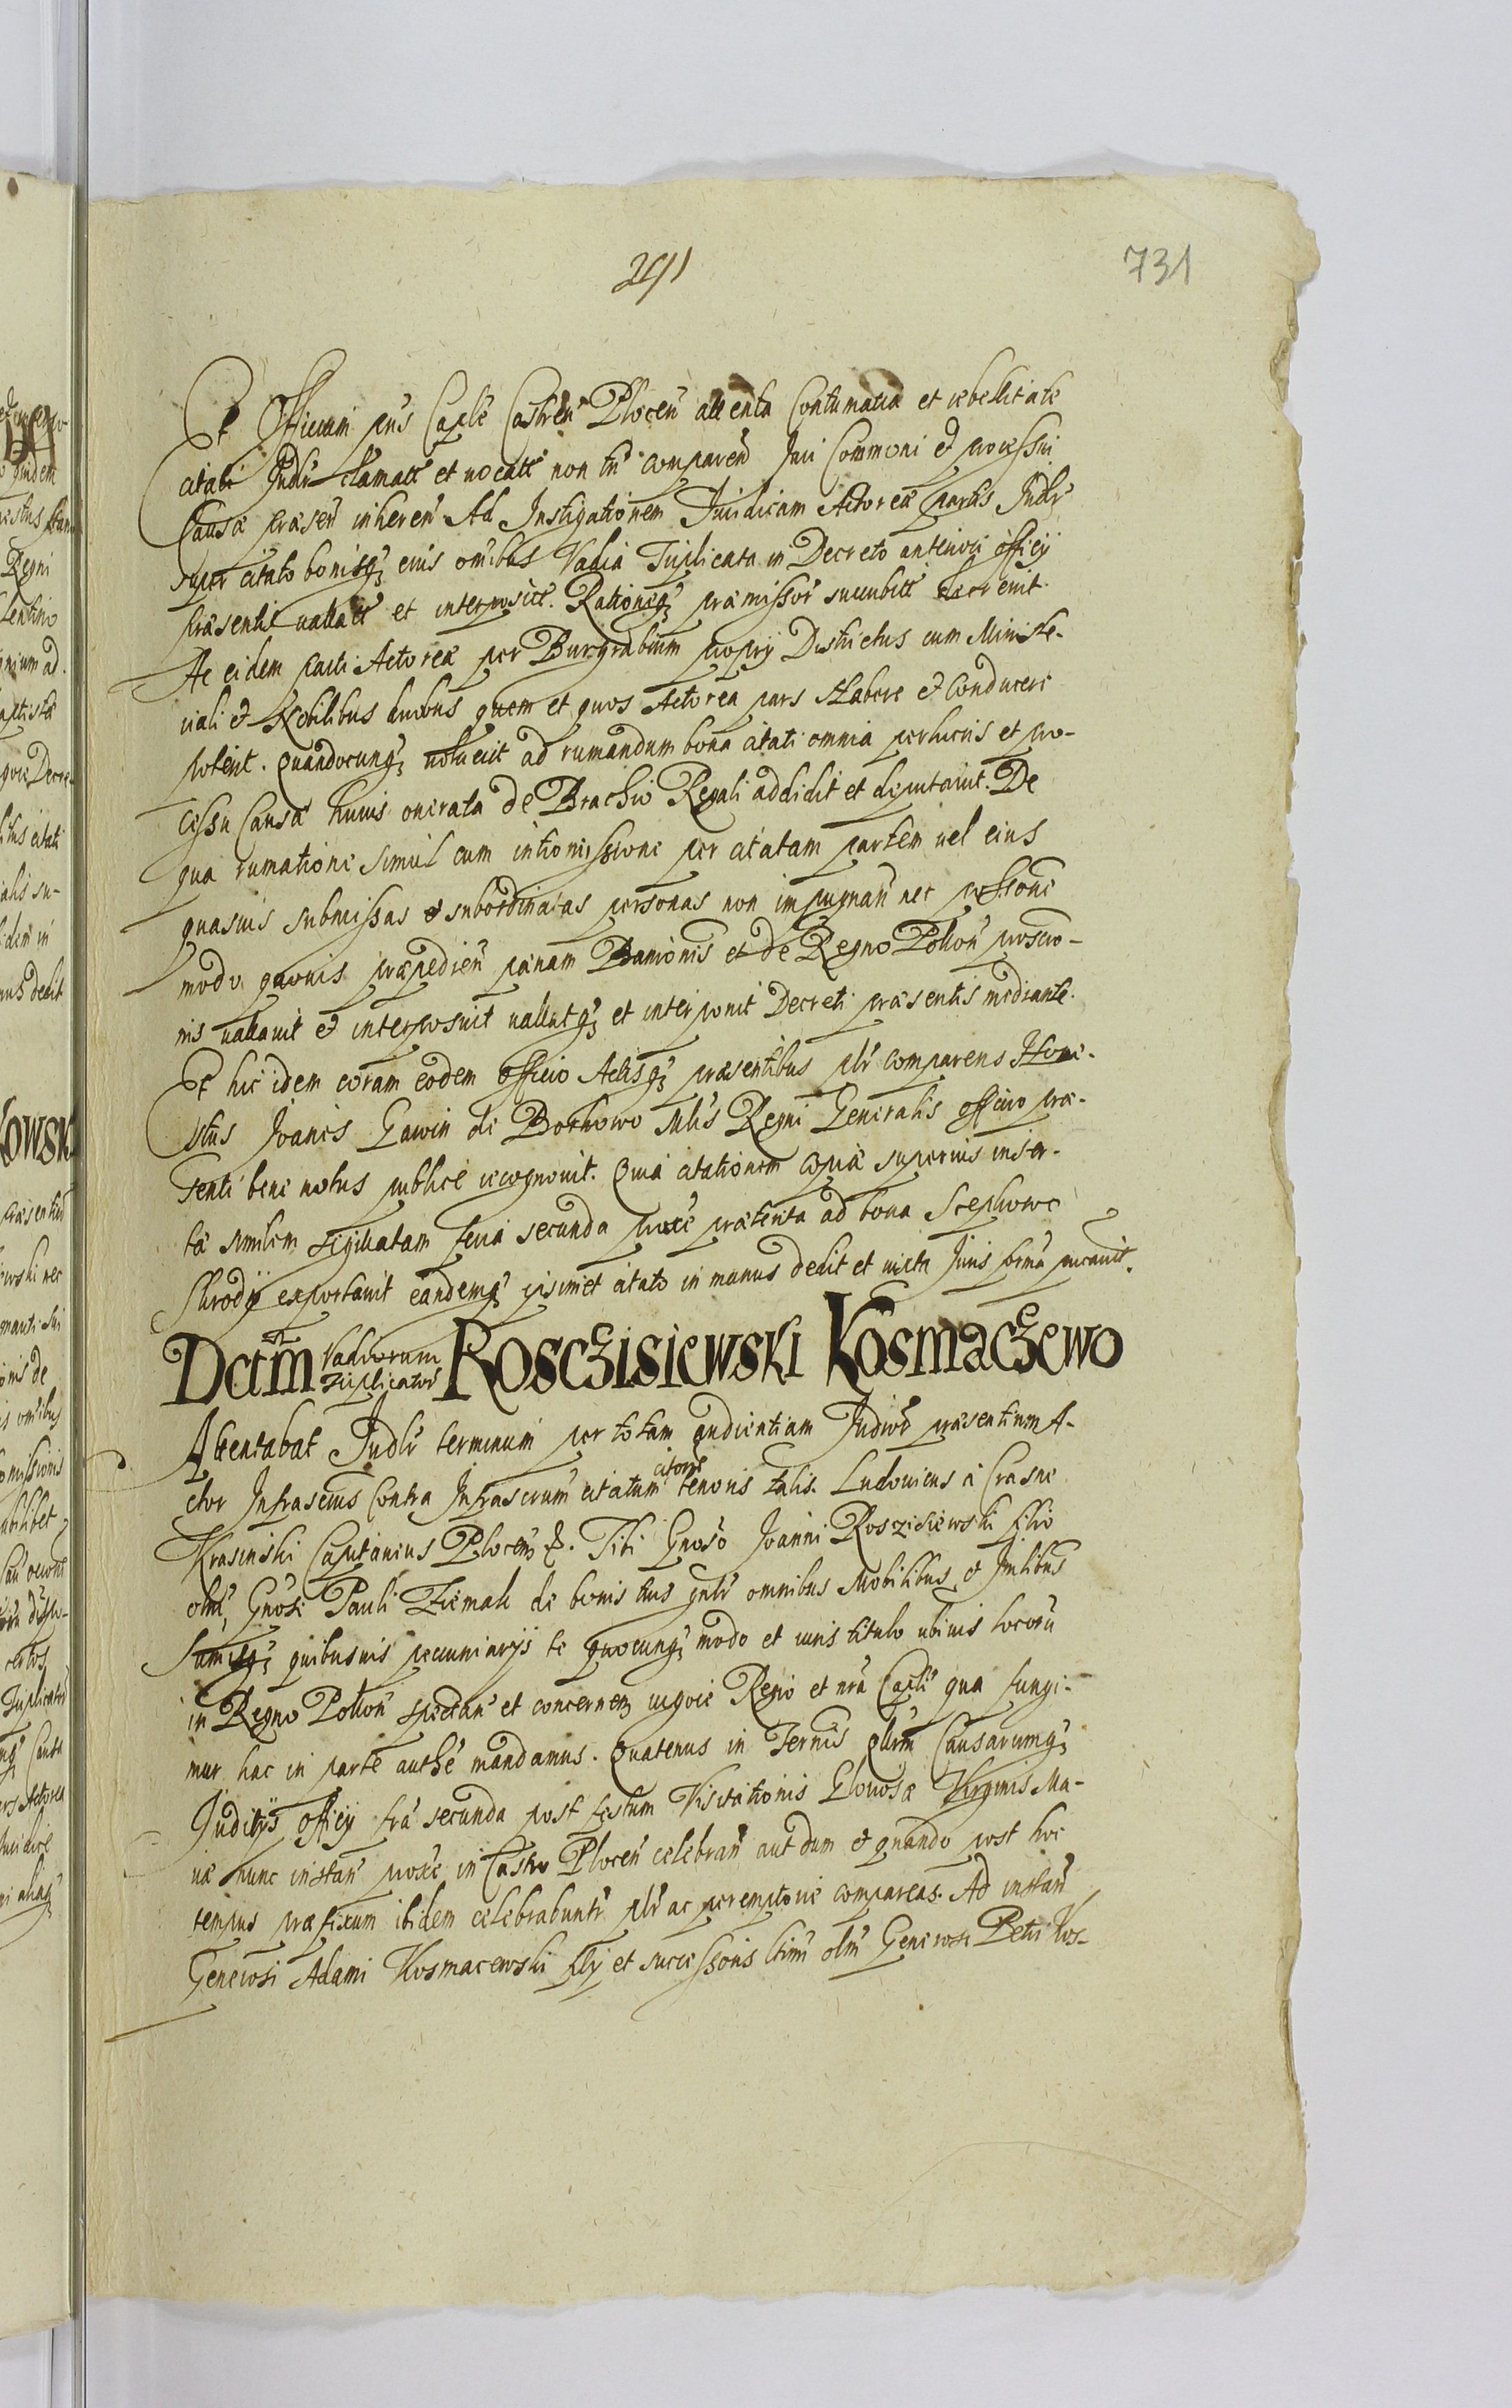 731
Et Officium pns Caple Castren Plocen attenta Contumatia et rebellitate
citati Judlr clamati et vocati non tn comparen Juri Communi et processui
Causæ præsen inheren Ad Instigationem Juridicam Actoreæ partis Judlr
super citato bonisq eius omibus Vadia Triplicata in Decreto anteriori officij
præsentis vallati et interpositi. Rationeq præmissor succubiti decrevit.
Ac eidem parti Actoreæ per Burgrabium proprij Districtus cum Ministe-
riali et Nobilibus duobus quem et quos Actorea pars Habere et Conducere
poterit. Quandocunq voluerit ad rumandum bona citati omnia perlucris et pro-
cessu Causæ huius onerata de Brachio Regali addidit et deputavit. De
qua rumatione simul cum intromissione per citatam partem vel eius
quasvis submissas et subordinatas personas non impugnan nec possone
modo quovis præpedien pœnam Banionis et de Regno Polon proscrip-
nis vallavit et interposuit vallatq et interponit Decreti præsentis mediante.
Et hic idem coram eodem officio Actisq præsentibus plr comparens Hone-
stus Joanes Gawin de Bochowo Mlis Regni Generalis officio præ-
senti bene notus publice recognovit. Quia citationem copiæ superius inser-
tæ similem sigillatam feria secunda proxe præterita ad bona Scephowo
Shrodij exportavit eandemq ipsimet citato in manus dedit et iuxta Juris forma
Dctm Vadiorum Triplicator Rosczisiewski Kosmaczewo
Attentabat Judlr terminum per totam audientiam Judior præsentium A-
ctor Infrascrus Contra Infrascrum citatum citone tenoris talis. Ludovicus à Crasne
Krasinski Capitanius Plocen &. Tibi Gnoso Joanni Rosziszewski filio
olim Gnosi Pauli Ziemak de bonis tuis gnlr omnibus Mobilibus et Imlibus
Sumisq quibusvis pecuniarijs te quocunq modo et iuris titulo ubivis locoru
in Regno Polon spectan et concernen vigore Regio et nra Capli qua fungi-
mur hac in parte authe mandamus. Quatenus in Ternis qllrm Causarumq
Juditijs officij fra secunda post festum Visitationis Gloriosæ Virginis Ma-
riæ nunc instan proxe in Castro Plocen celebran aut dum et quando post hoc
tempus præfixum ibidem celebrabuntr plr ac peremptorie compareas. Ad instan
Generosi Adami Kosmacewski filij et successoris ltimi olim Generosi Petri Kos-